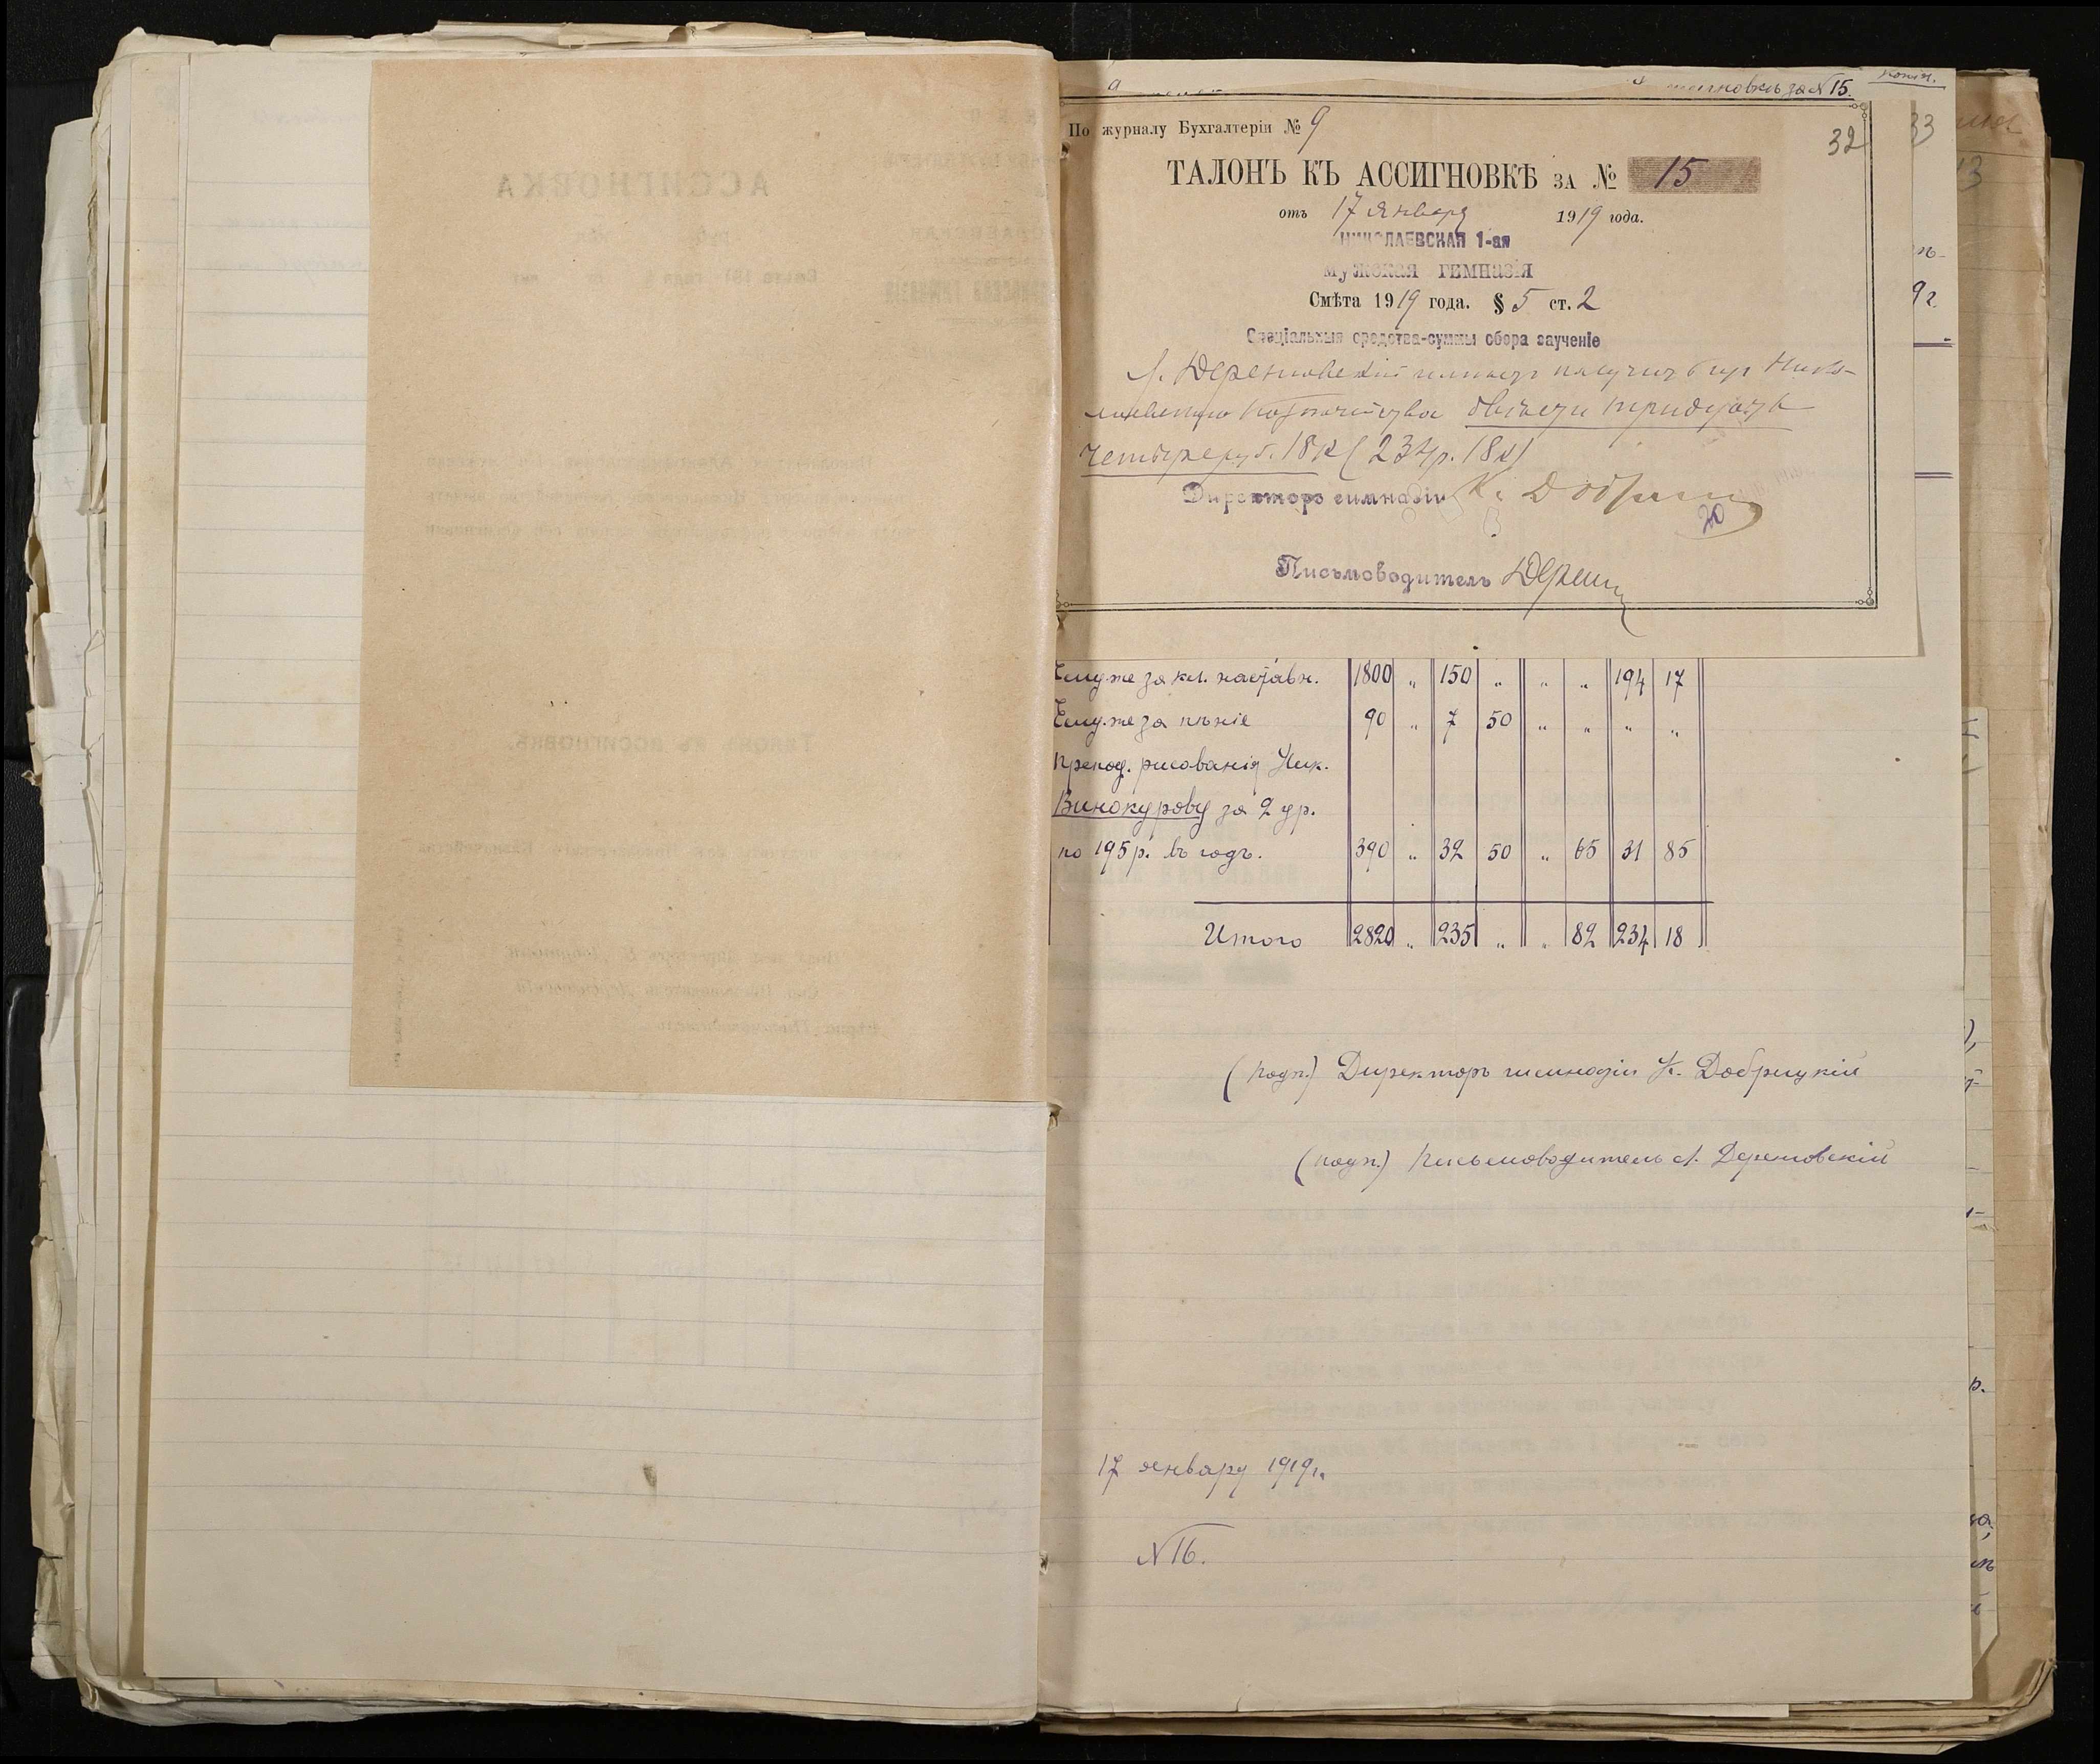 ассигновкѣ за № 15.
Копія.
По журналу Бухгалтеріи № 9
32
33
ТАЛОНЪ КЪ АССИГНОВКѢ ЗА № 15
отъ 17 января 1919 года.
НИКОЛАЕВСКАЯ 1-ая
мужская гемназія
Смѣта 1919 года. § 5 ст. 2
Спеціальныя средства-суммы сбора заученіе
двѣсти тридцать
четыре руб. 18 к (234 р. 18 к)
Директоръ гимназіи К. Добр
20
Письмоводитель Дерен
Ему же за кл. наставн. 1800 „ 150 „ „ „ 194 17
Ему же за пѣніе 90 „ 7 50 „ „ „ „
Препод. рисованія Ник.
Винокурову за 2 ур.
по 195 р. въ годъ. 390 „ 32 50 „ 65 31 85
Итого 2820 „ 235 „ „ 82 234 18
(подп.) Директоръ гимназіи К. Добрицкій
(подп.) Письмоводитель Л. Дереновскій
17 января 1919 г.
№ 16.